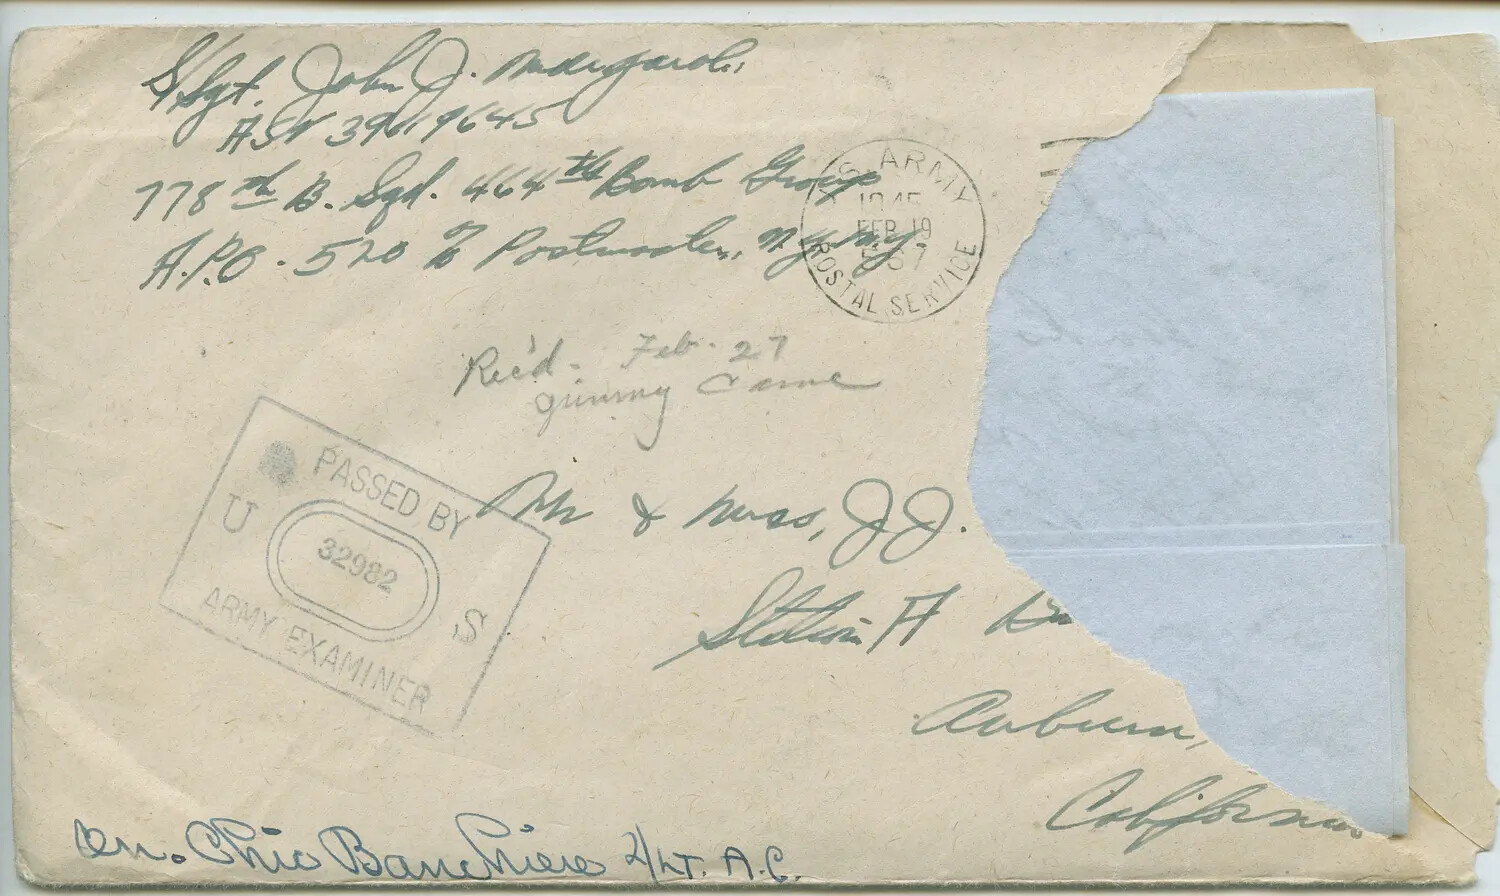 S/Sgt. John J. Margaroli
ASN 39619645
778th B. Sqd. 464th Bomb Group
A.P.O. 520 % Postmaster, N.Y., N.Y.
U.S. ARMY
1945
FEB 19
POSTAL SERVICE
Rec'd - Feb. 27
Jimmy Came
PASSED BY
U S
32982
ARMY EXAMINER
Mr & Mrs, J.J.
Station A
Auburn,
California
Chic Banchiere 2/LT. A.C.